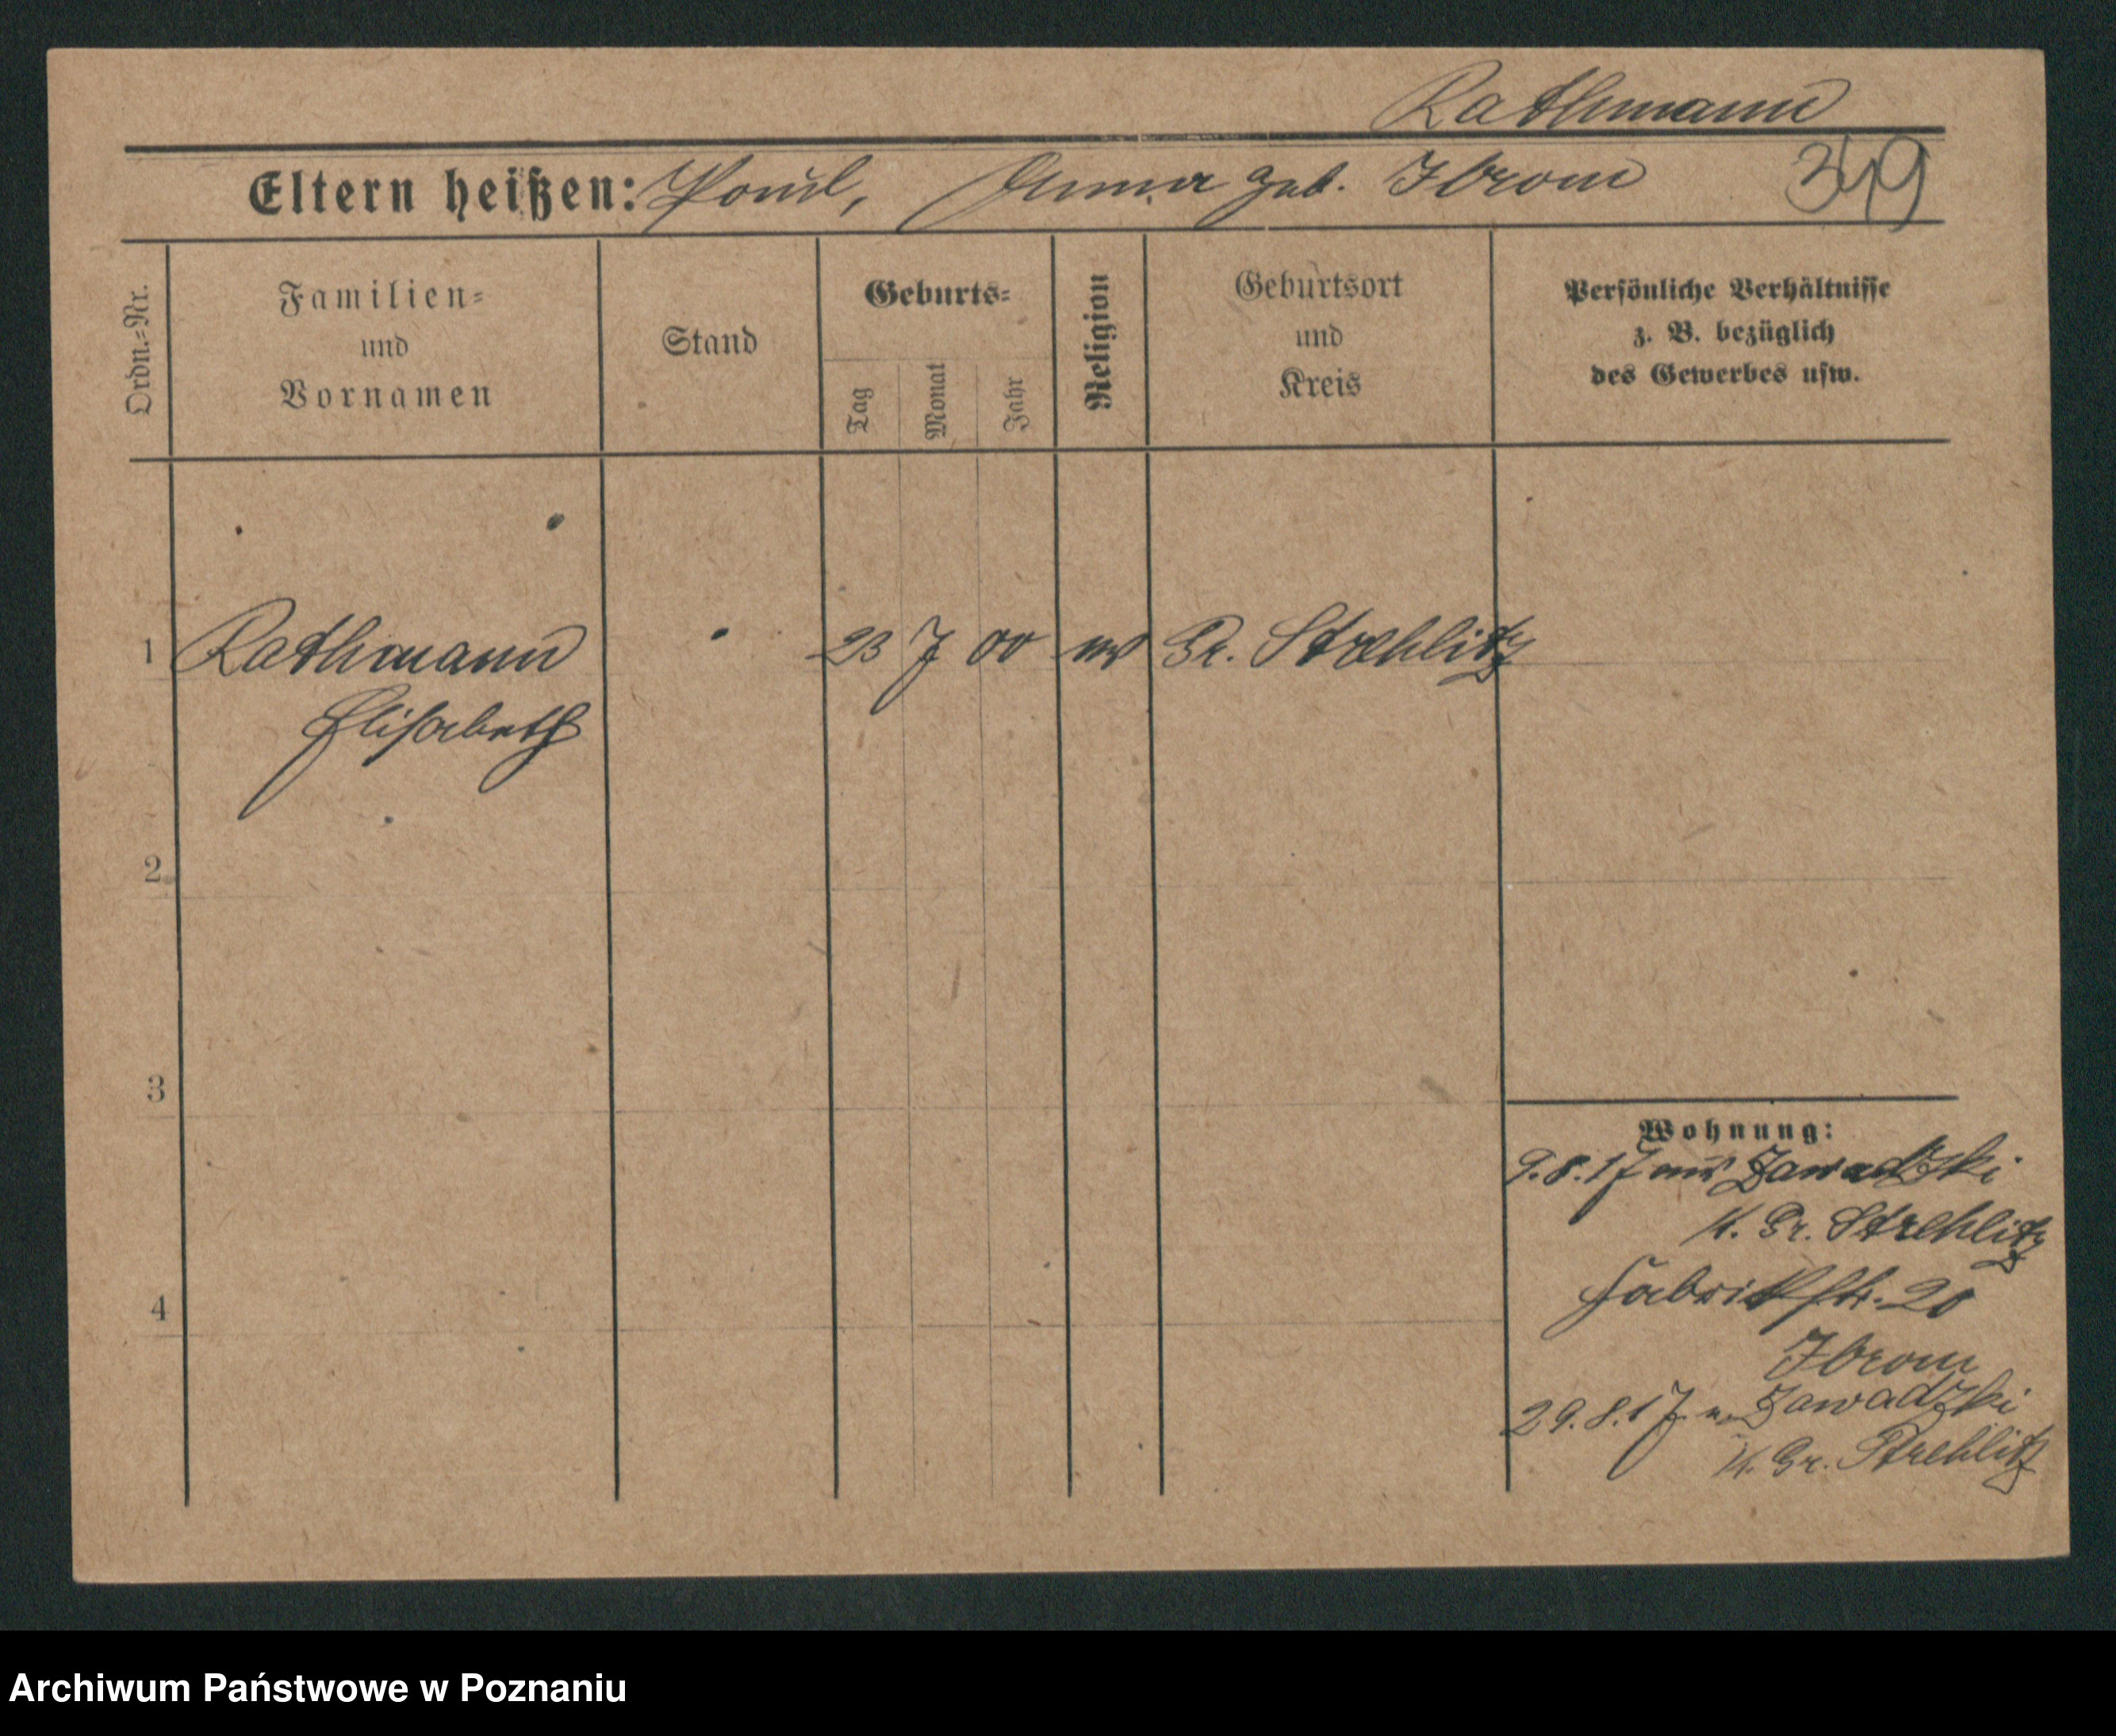 Rathmann
Eltern heißen: Paul, Anna geb. Ibrom 349
Ordn.=Nr.
Familien=
und
Vornamen
Stand
Geburts=
Tag
Monat
Jahr
Religion
Geburtsort
und
Kreis
Persönliche Verhältnisse
z. B. bezüglich
des Gewerbes usw.
1 Rathmann 23 7 00 Gr. Strehlitz
Elisabeth
2
3
4
Wohnung:
9.8.17 aus Zawadzki
K. Gr. Strehlitz
Fabrikstr. 20
Ibrom
29.8.17 n. Zawadzki
K. Gr. Strehlitz
Archiwum Państwowe w Poznaniu